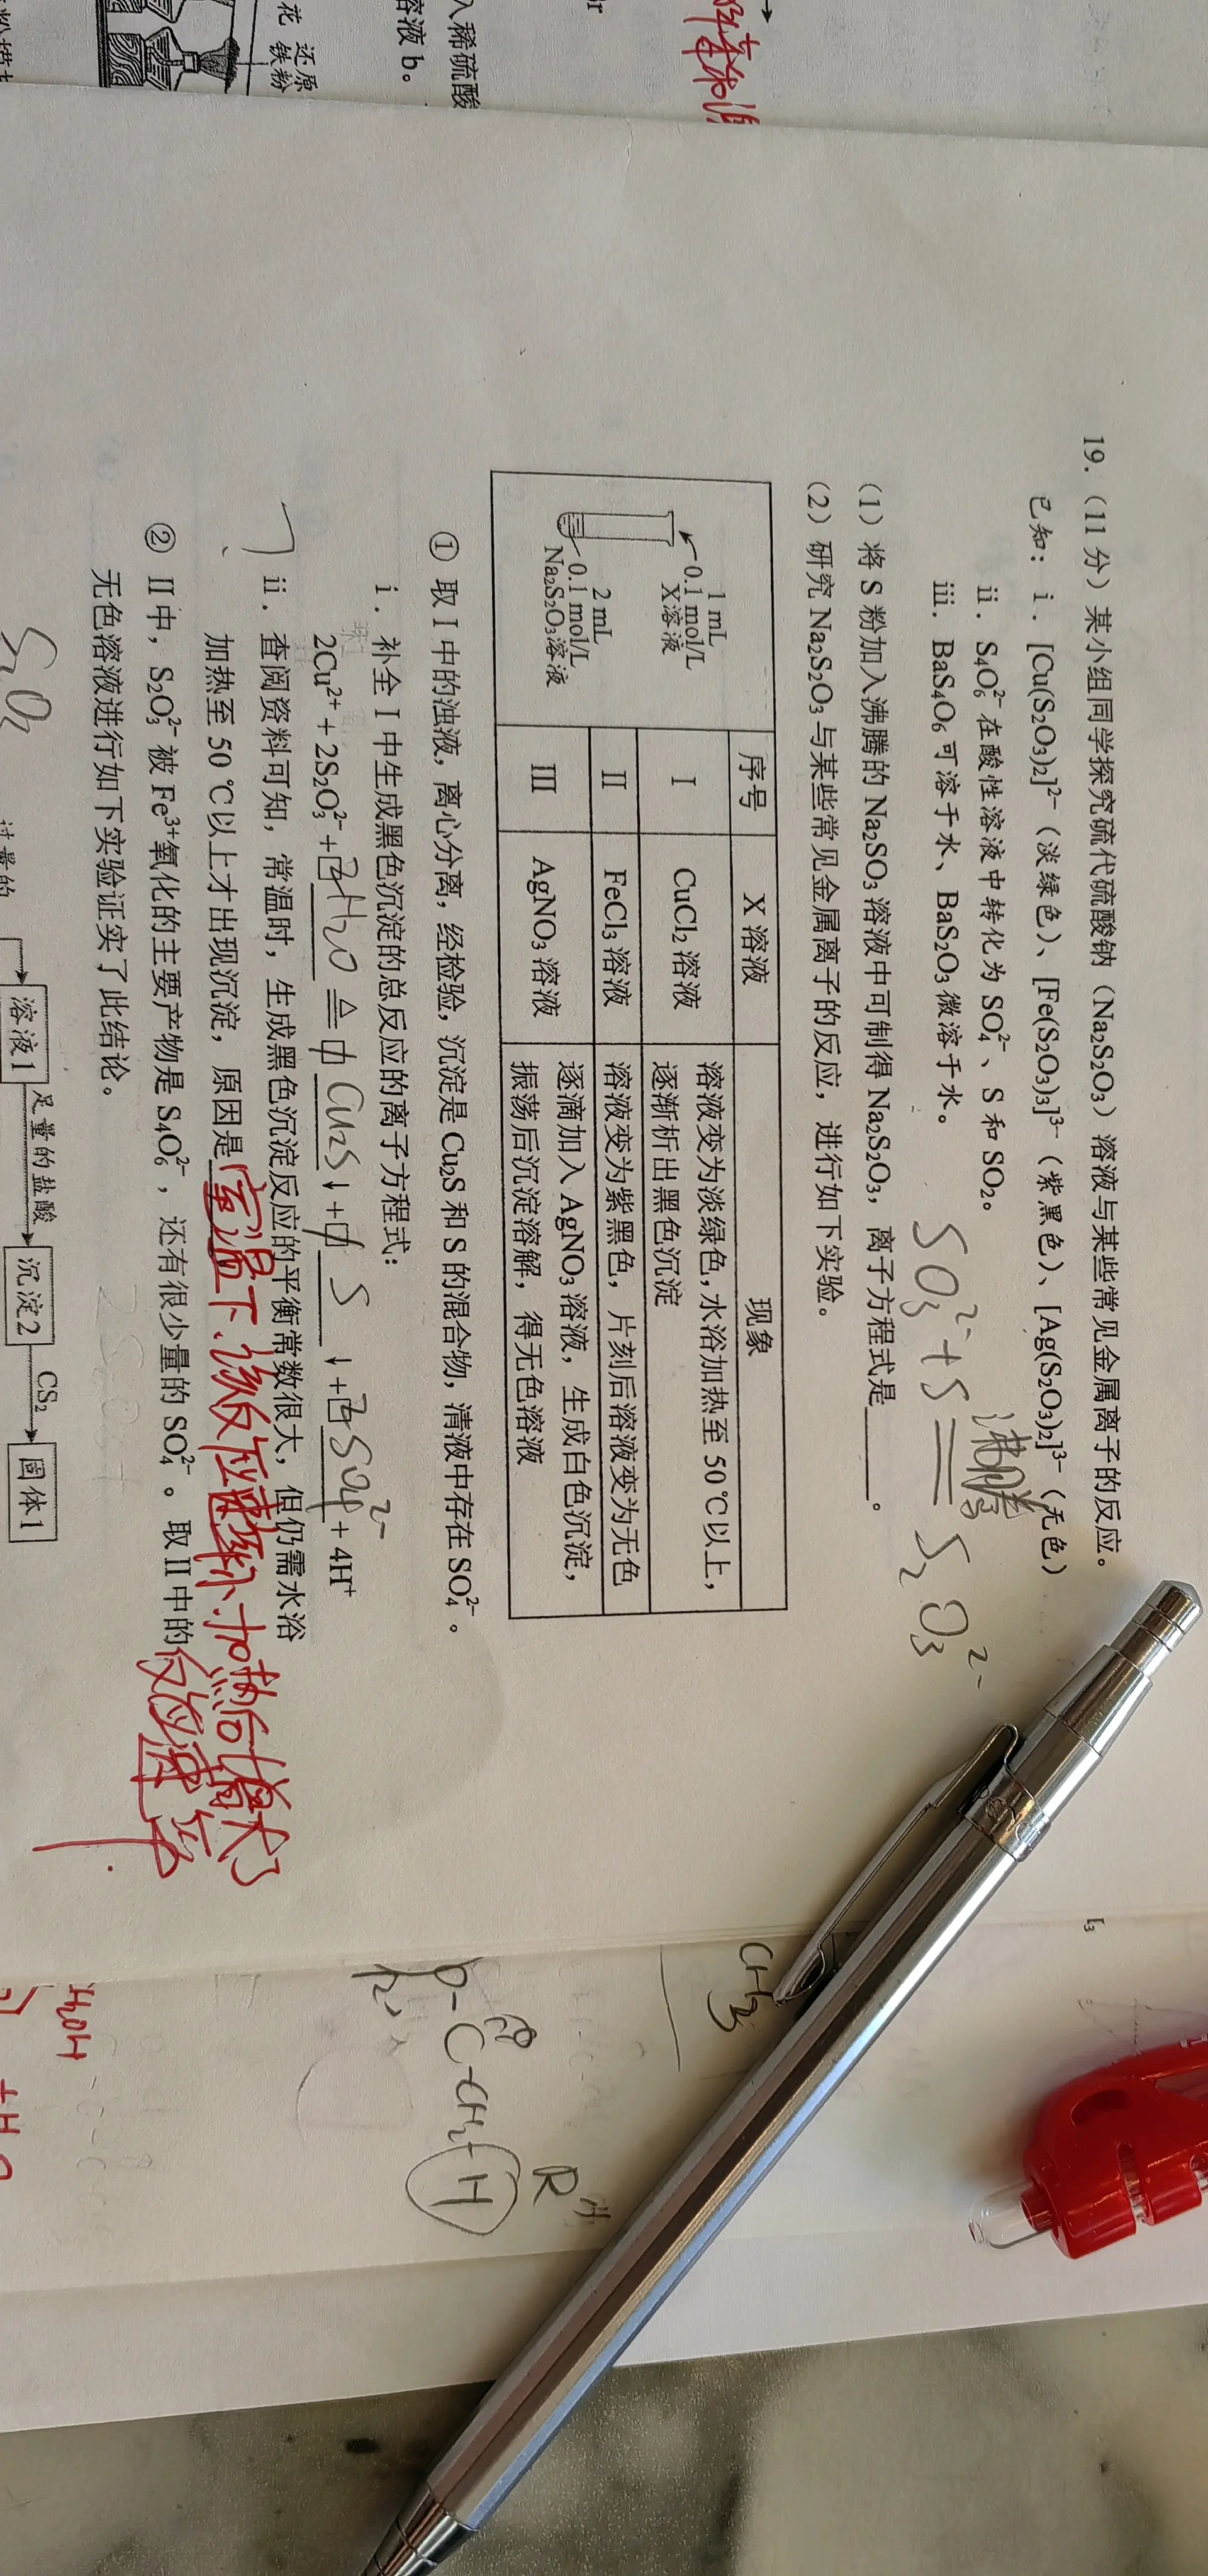 入稀硫酸
溶液 b。
还原
铁粉
花
19.（11 分）某小组同学探究硫代硫酸钠（Na₂S₂O₃）溶液与某些常见金属离子的反应。
已知：ⅰ. [Cu(S₂O₃)₂]²⁻（淡绿色）、[Fe(S₂O₃)₃]³⁻（紫黑色）、[Ag(S₂O₃)₂]³⁻（无色）
ⅱ. S₄O₆²⁻ 在酸性溶液中转化为 SO₄²⁻、S 和 SO₂。
ⅲ. BaS₄O₆ 可溶于水、BaS₂O₃ 微溶于水。
沸腾
SO₃²⁻ + S ═ S₂O₃²⁻
（1）将 S 粉加入沸腾的 Na₂SO₃ 溶液中可制得 Na₂S₂O₃，离子方程式是______。
（2）研究 Na₂S₂O₃ 与某些常见金属离子的反应，进行如下实验。
序号 X 溶液 现象
1 mL
0.1 mol/L
X溶液
2 mL
0.1 mol/L
Na₂S₂O₃溶液
Ⅰ CuCl₂ 溶液 溶液变为淡绿色，水浴加热至 50 ℃以上，
逐渐析出黑色沉淀
Ⅱ FeCl₃ 溶液 溶液变为紫黑色，片刻后溶液变为无色
Ⅲ AgNO₃ 溶液 逐滴加入 AgNO₃ 溶液，生成白色沉淀，
振荡后沉淀溶解，得无色溶液
① 取 I 中的浊液，离心分离，经检验，沉淀是 Cu₂S 和 S 的混合物，清液中存在 SO₄²⁻。
ⅰ. 补全 I 中生成黑色沉淀的总反应的离子方程式：
2Cu²⁺ + 2S₂O₃²⁻ + 2H₂O ≜ 1 Cu₂S ↓ + 1 S ↓ + 2 SO₄²⁻ + 4H⁺
ⅱ. 查阅资料可知，常温时，生成黑色沉淀反应的平衡常数很大，但仍需水浴
加热至 50 ℃以上才出现沉淀，原因是室温下，该反应速率小，加热后增大
反应速率
② II 中，S₂O₃²⁻ 被 Fe³⁺氧化的主要产物是 S₄O₆²⁻，还有很少量的 SO₄²⁻。取 II 中的
无色溶液进行如下实验证实了此结论。
溶液1 足量的盐酸 沉淀2 CS₂ 固体1
过量的
CH₃
H